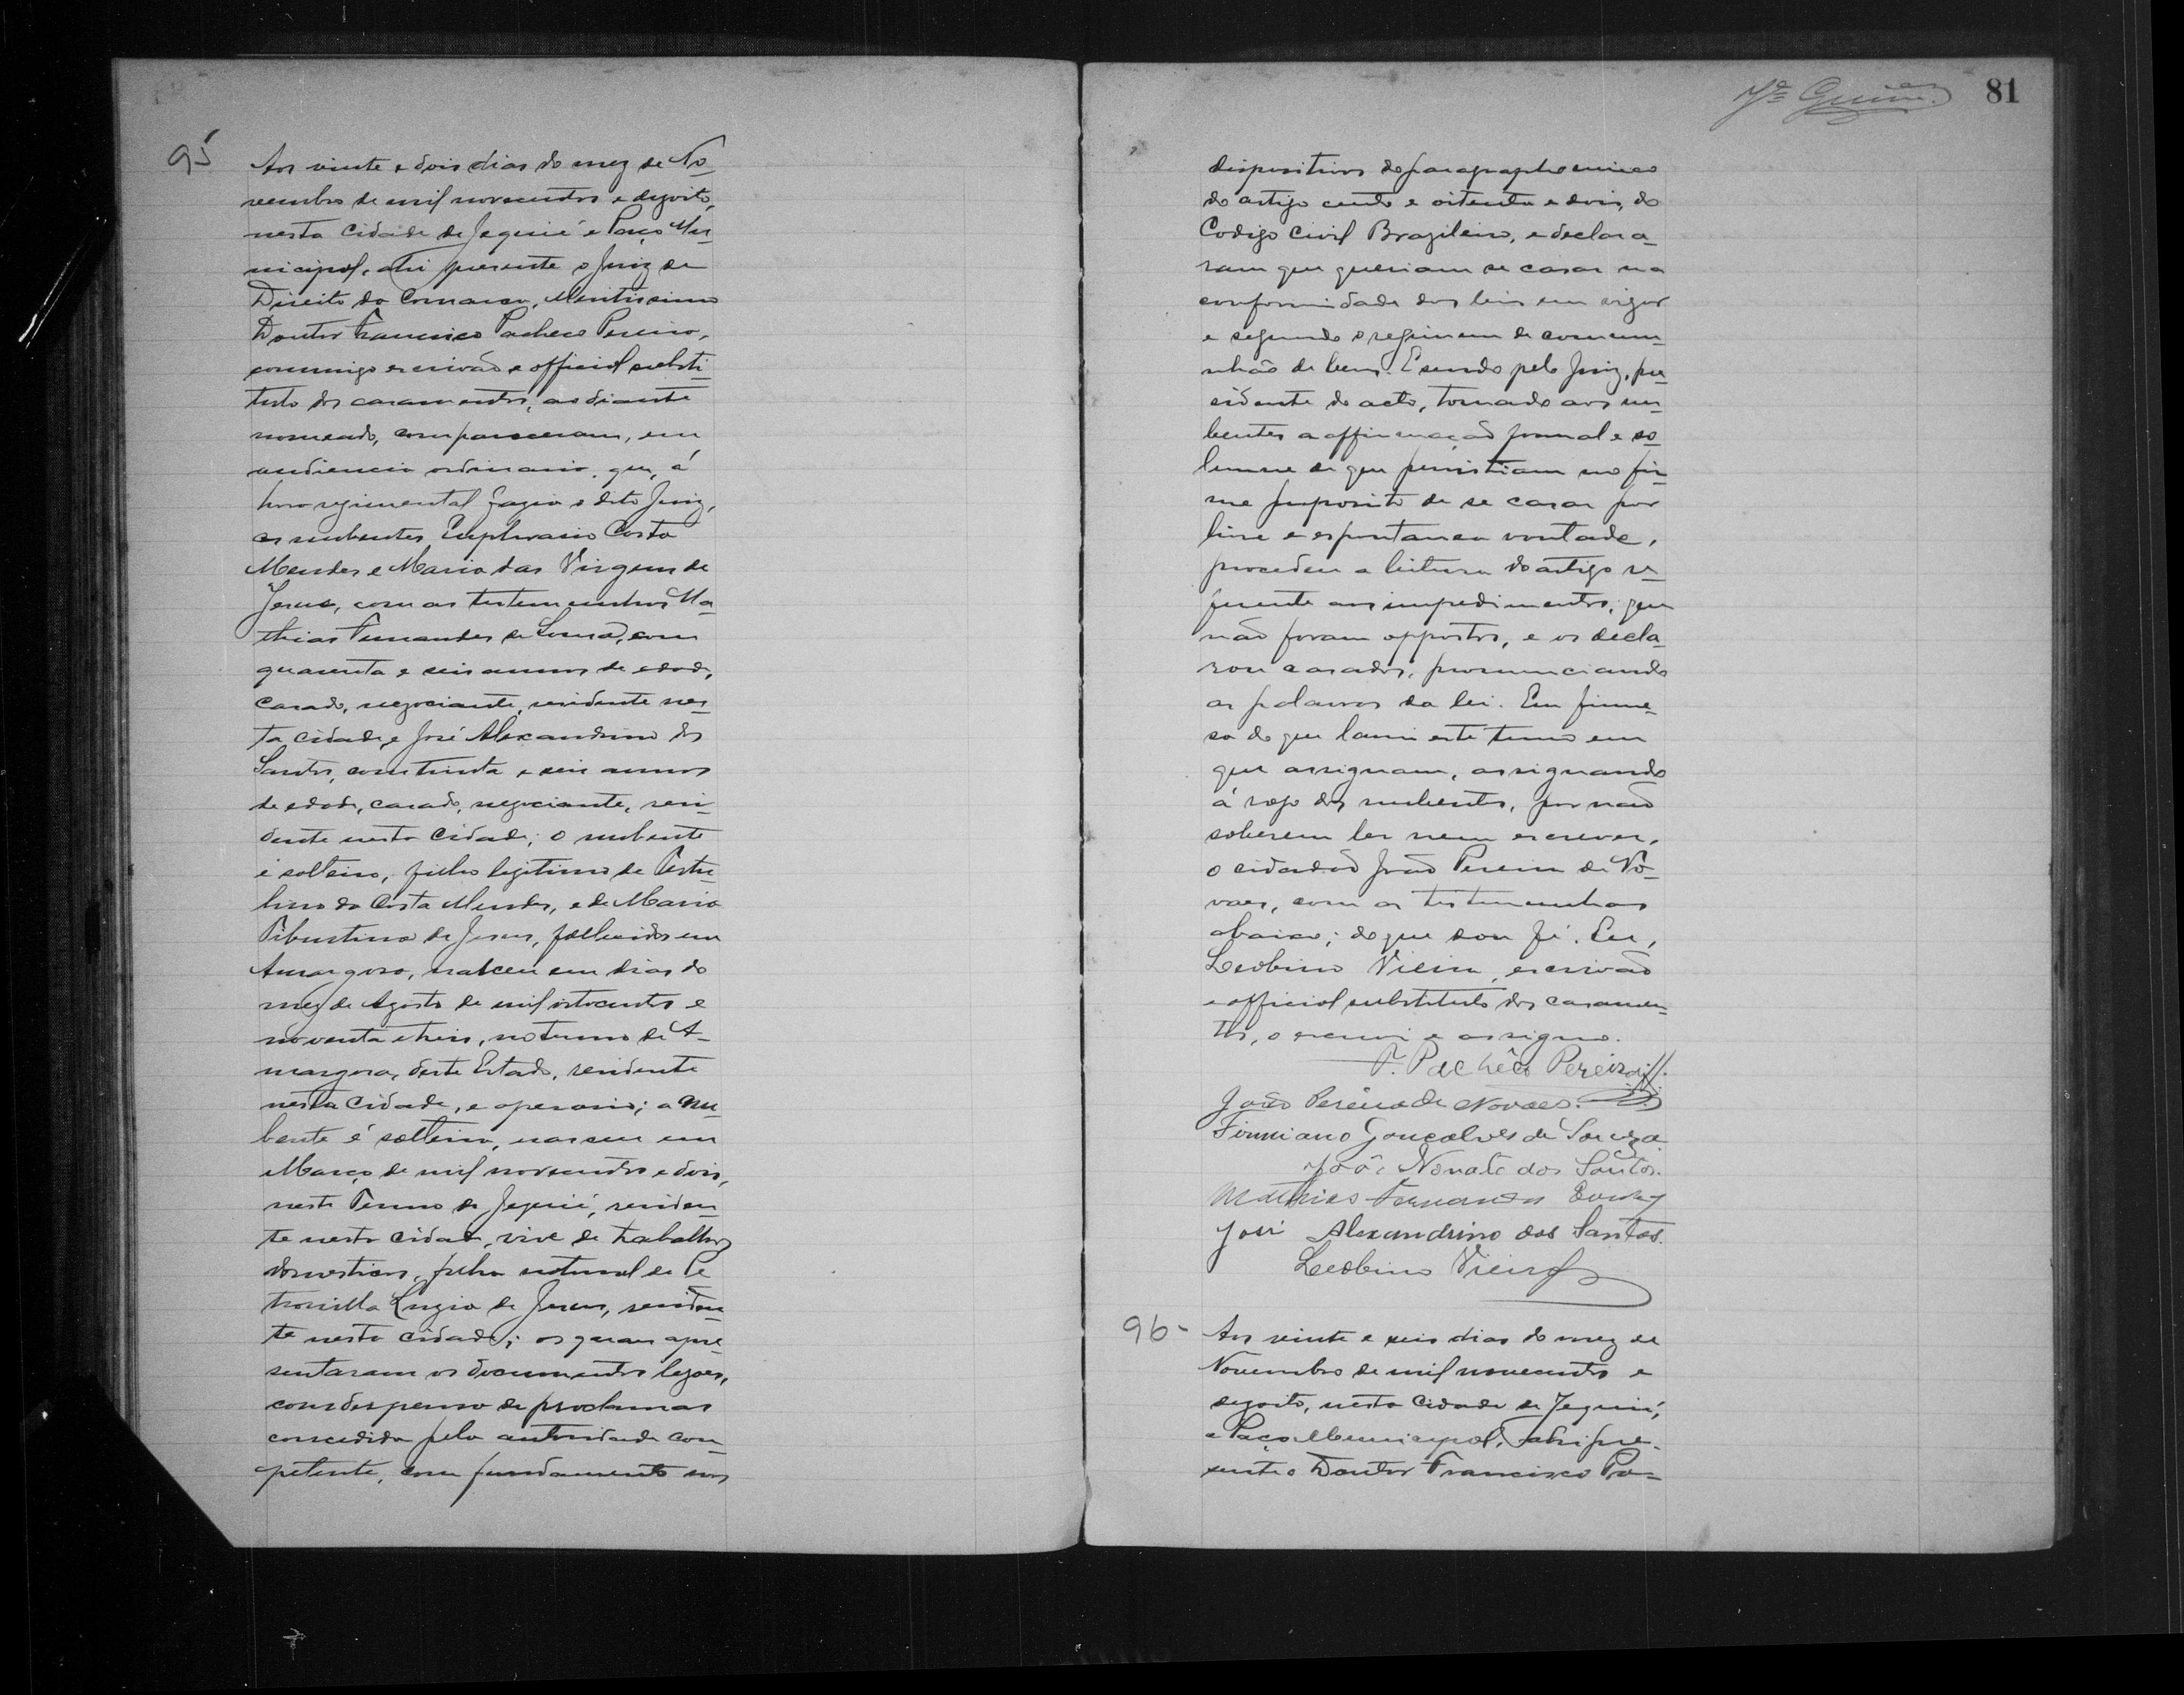 95
Aos vinte e dois dias do mez de No-
vembro de mil novecentos e dezoito,
nesta Cidade de Jequié e Paço Mu-
nicipal, ahi presente o Juiz de
Direito da Comarca, Meritissimo
Doutor Francisco Pacheco Pereira,
commigo escrivão e official substi-
tuto dos casamentos, ao diante
nomeado, compareceram, em
audiencia ordinaria, que, á
hora regimental fazia o dito Juiz,
os nubentes Euphrasio Costa
Mendes e Maria das Virgens de
Jesus, com as testemunhas Ma-
thias Fernandes de Souza, com
quarenta e seis annos de edade,
casado, negociante, residente nes-
ta cidade, e José Alexandrino dos
Santos, com trinta e seis annos
de edade, casado, negociante, resi-
dente nesta Cidade; o nubente
é solteiro, filho legitimo de
da Costa Mendes, e de Maria
Tiburtina de Jesus, fallecidos em
Amargosa, nasceu em dias do
mez de Agosto de mil oitocentos e
noventa e treis, no termo de A-
margosa, deste Estado, residente
nesta Cidade, e operario; a nu-
bente é solteira, nasceu em
Março de mil novecentos e dois,
neste Termo de Jequié, residen-
te nesta cidade, vive de trabalhos
domesticos, filha natural de Pe
tronilla Luzia de Jesus, residen-
te nesta cidade; os quaes apre-
sentaram os documentos legaes,
com despensa de proclamas
concedida pela autoridade com-
petente, com fundamento nos
81
dispositivos do paragrapho unico
do artigo cento e oitenta e dois, do
Codigo Civil Brazileiro, e declara-
ram que queriam se casar na
conformidade das leis em vigor
e segundo o regimem de commu-
nhão de bens. E sendo pelo Juiz, pre-
sidente do acto, tomado aos nu-
bentes a affirmação formal e so-
lemne de que persistiam no fir-
me proposito de se casar por
livre e espontanea vontade,
procedeu a leitura do artigo re-
ferente aos impedimentos, que
não foram oppostos, e os decla-
rou casados, pronunciando
as palavras da lei. Em firme-
sa do que lavrei este termo em
que assignam, assignando
á rogo dos nubentes, por não
saberem ler nem escrever,
o cidadão João Pereira de No-
vaes, com as testemunhas
abaixo; do que dou fé. Eu,
Leobino Vieira, escrivão
e official substituto dos casamen-
tos, o escrevi e assigno.
F. Pachêco Pereira
João Pereira de Novaes.
Firmiano Gonçalves de Souza
João Nonato dos Santos.
Mathias Fernandes Souza
José Alexandrino dos Santos.
Leobino Vieira
96-
Aos vinte e seis dias do mez de
Novembro de mil novecentos e
dezoito, nesta Cidade de Jequié,
e Paço Municipal, ahi pre-
sente o Doutor Francisco Pa-